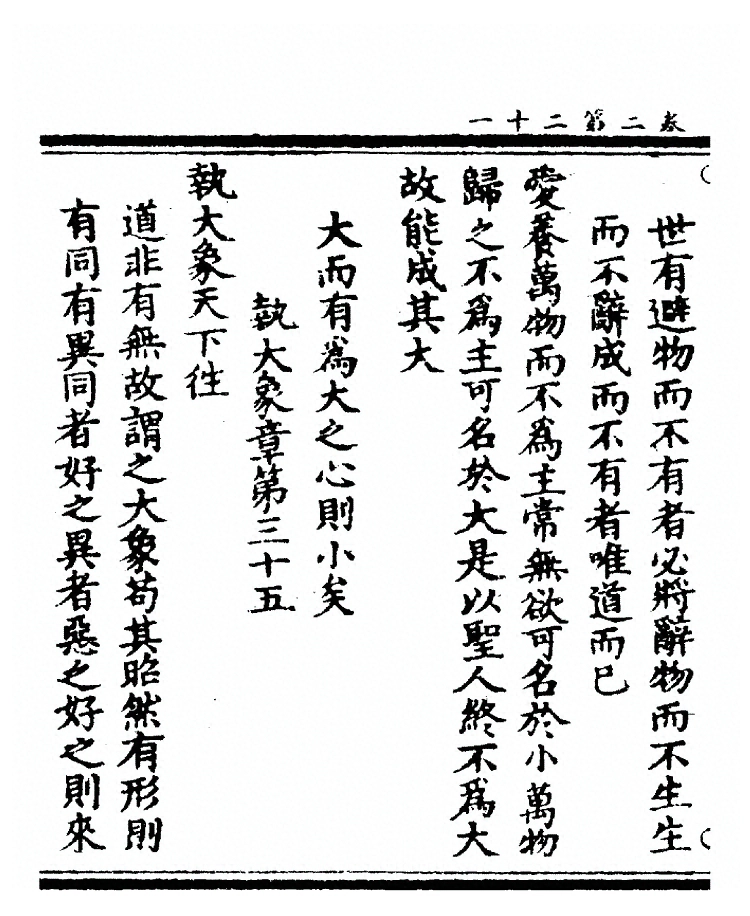 卷二第二十一
世有避物而不有者必將辭物而不生生
而不辭成而不有者唯道而已
愛養萬物而不爲主常無欲可名於小萬物
歸之不爲主可名於大是以聖人終不爲大
故能成其大
大而有爲大之心則小矣
執大象章第三十五
執大象天下往
道非有無故謂之大象苟其昭然有形則
有同有異同者好之異者惡之好之則來